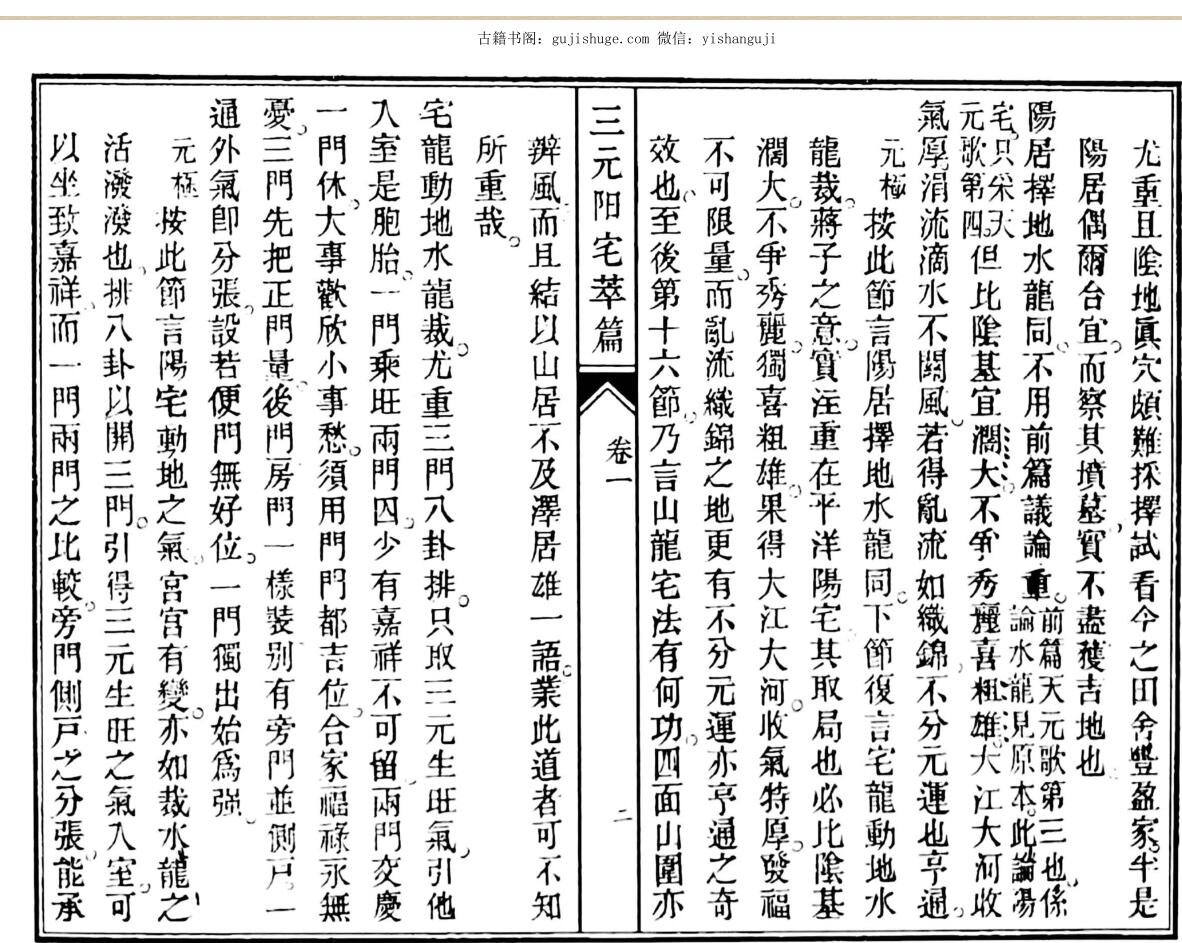 古籍书阁：gujishuge.com 微信：yishanguji
尤重且陰地眞穴頗難採擇試看今之田舍豐盈家半是
陽居偶爾台宜而察其墳墓實不盡穫吉地也
陽居擇地水龍同不用前篇議論重前篇天元歌第三也係論水龍見原本此論陽
宅只采天元歌第四但比陰基宜濶大不爭秀麗喜粗雄大江大河收
氣厚涓流滴水不關風若得亂流如織錦不分元運也亨通
元極按此節言陽居擇地水龍同下節復言宅龍動地水
龍裁蔣子之意實注重在平洋陽宅其取局也必比陰基
濶大不爭秀麗獨喜粗雄果得大江大河收氣特厚發福
不可限量而亂流織錦之地更有不分元運亦亨通之奇
效也至後第十六節乃言山龍宅法有何功四面山圍亦
三元阳宅萃篇
卷一
二
辨風而且結以山居不及澤居雄一語業此道者可不知
所重哉
宅龍動地水龍裁尤重三門八卦排只取三元生旺氣引他
入室是胞胎一門乘旺兩門囚少有嘉祥不可留兩門交慶
一門休大事歡欣小事愁須用門門都吉位合家福祿永無
憂三門先把正門量後門房門一樣裝别有旁門並側戸一
通外氣卽分張設若便門無好位一門獨出始爲强
元極按此節言陽宅動地之氣宮宮有變亦如裁水龍之
活潑潑也排八卦以開三門引得三元生旺之氣入室可
以坐致嘉祥而一門兩門之比較旁門側戸之分張能承